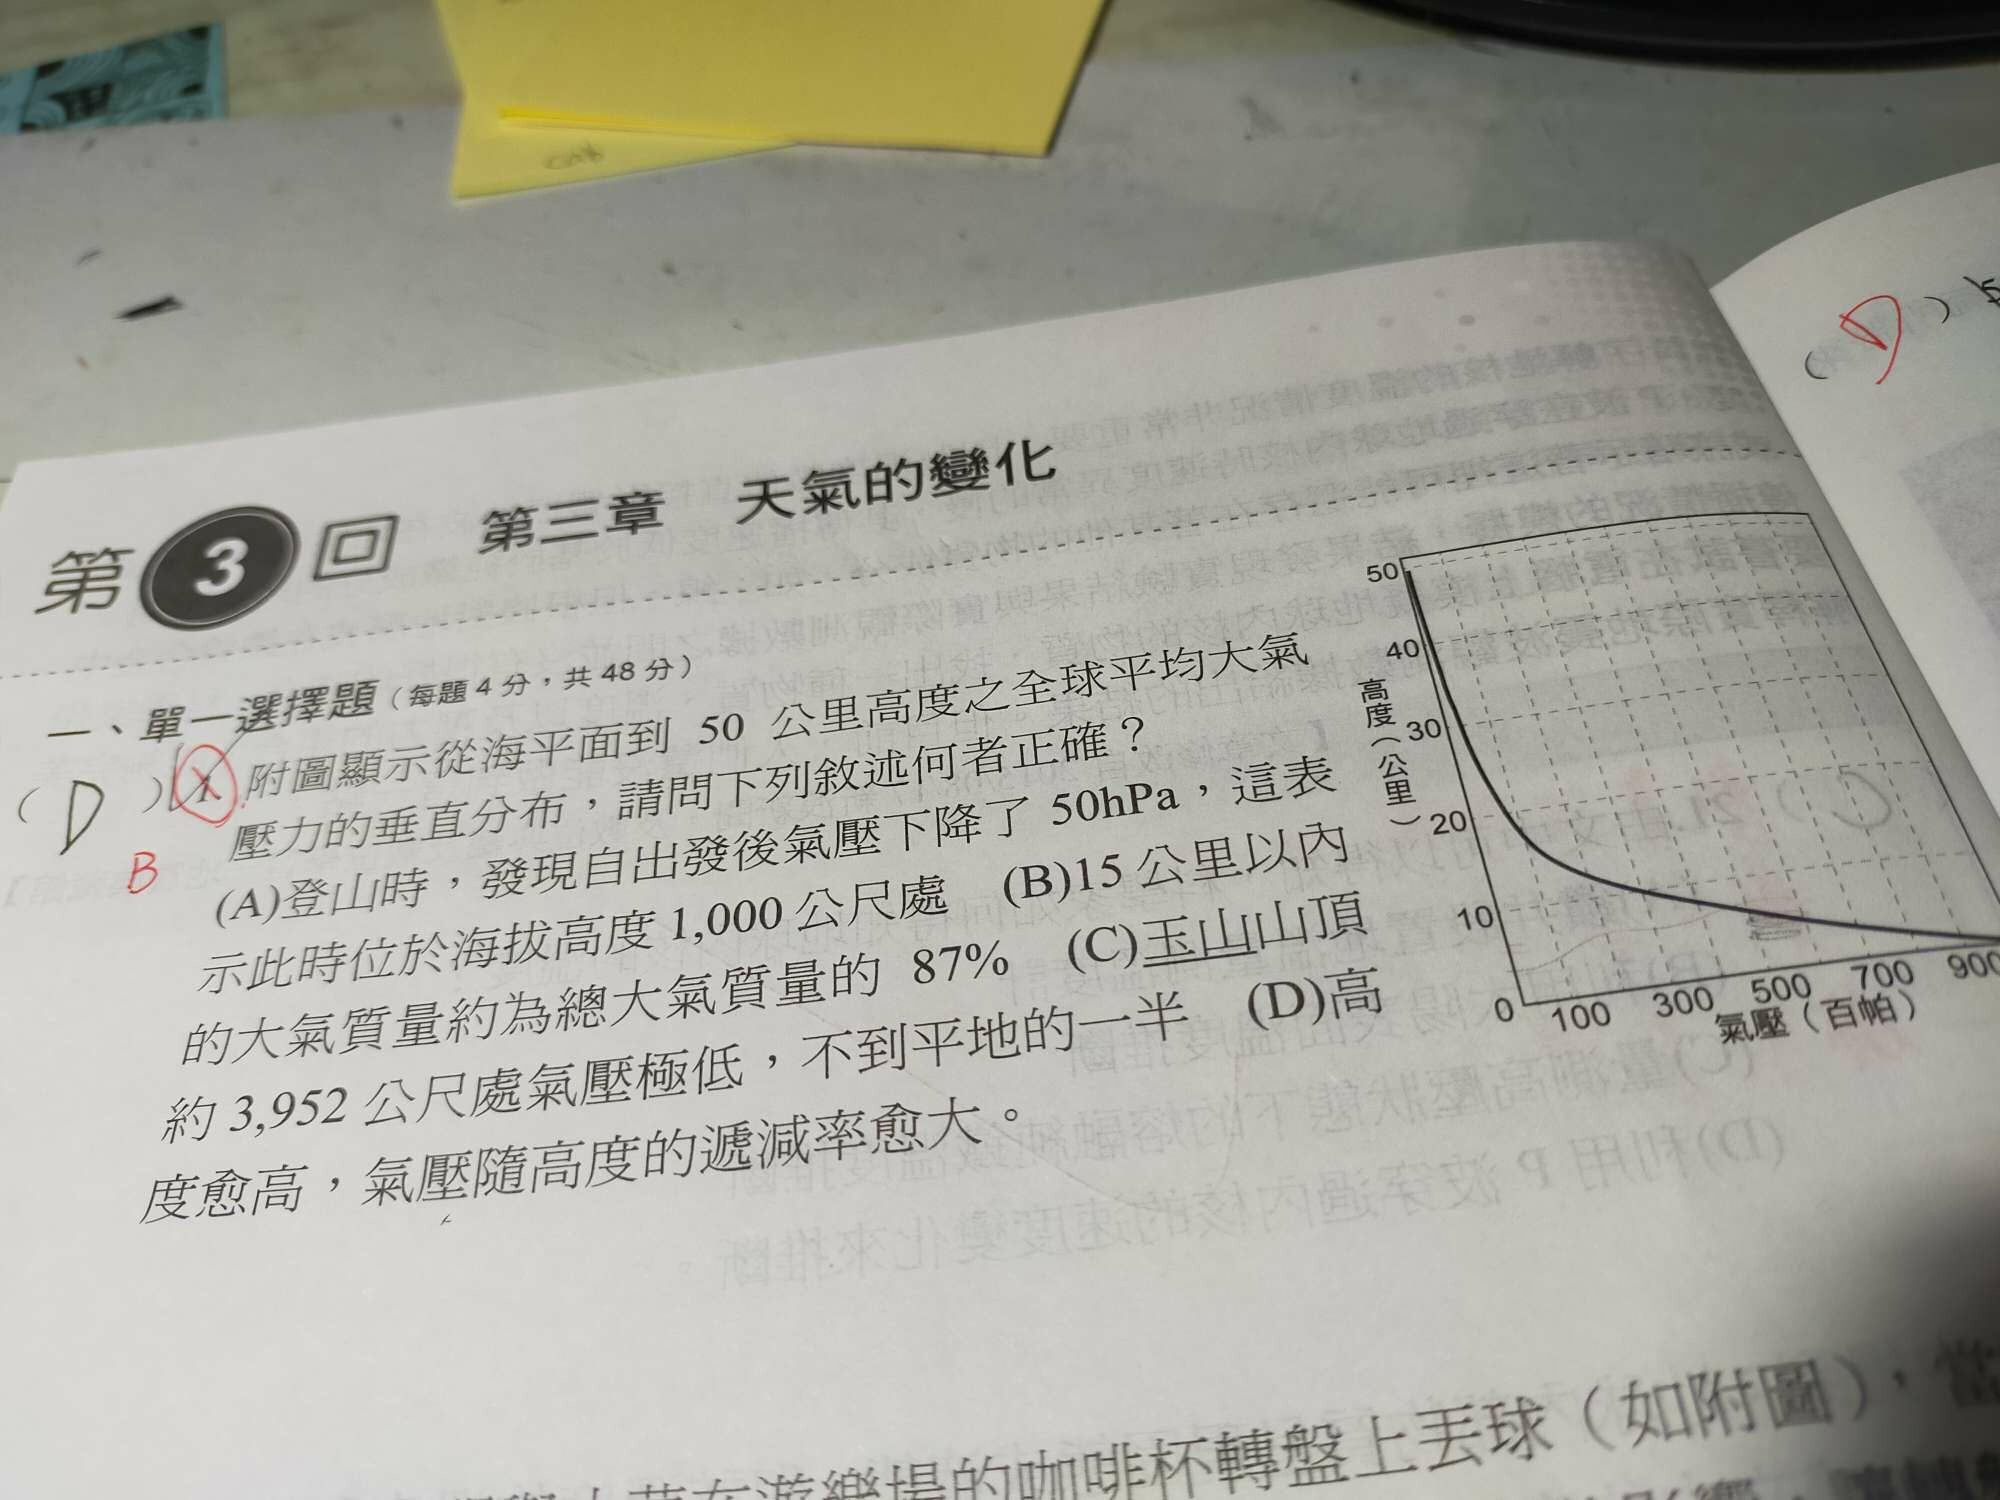 第3回 第三章 天氣的變化
一、單一選擇題（每題4分，共48分）
( D ) 1. 附圖顯示從海平面到 50 公里高度之全球平均大氣
B
壓力的垂直分布，請問下列敘述何者正確？
(A)登山時，發現自出發後氣壓下降了 50hPa，這表
示此時位於海拔高度 1,000 公尺處 (B)15 公里以內
的大氣質量約為總大氣質量的 87% (C)玉山山頂
約 3,952 公尺處氣壓極低，不到平地的一半 (D)高
度愈高，氣壓隨高度的遞減率愈大。
50
40
30
20
10
0
高度（公里）
100 300 500 700 900
氣壓（百帕）
( D )
在遊樂場的咖啡杯轉盤上丟球（如附圖），當